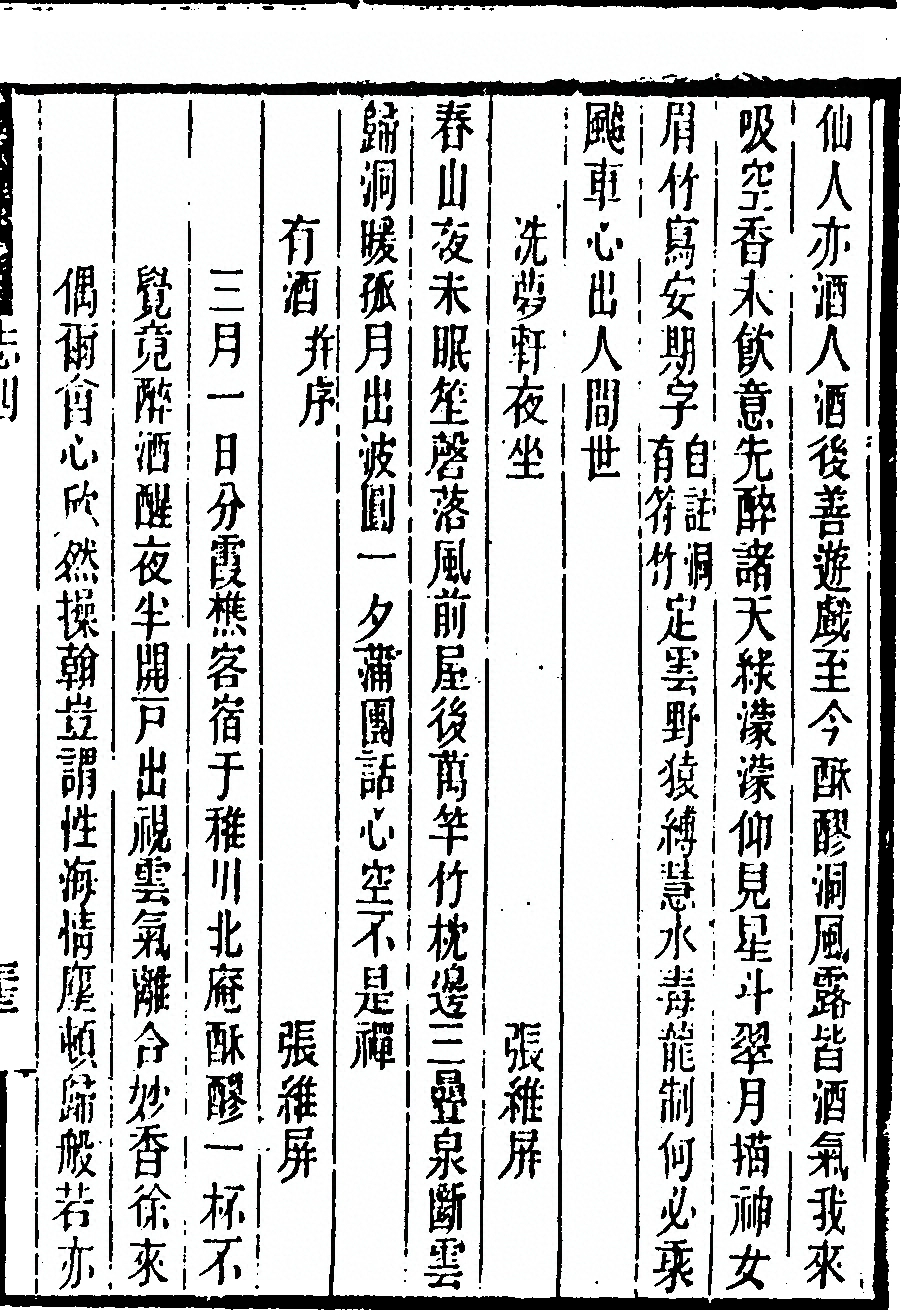 仙人亦酒人酒後善遊戲至今酥醪洞風露皆酒氣我來
吸空香未飲意先醉諸天綠濛濛仰見星斗翠月描神女
眉竹寫安期字自註洞有符竹定雲野猿縛慧水毒龍制何必乘
飈車心出人間世
洗夢軒夜坐 張維屏
春山夜未眠笙磬落風前屋後萬竿竹枕邊三疊泉斷雲
歸洞暖孤月出波圓一夕蒲團話心空不是禪
有酒 幷序 張維屏
三月一日分霞樵客宿于稚川北庵酥醪一杯不
覺竟醉酒醒夜半開戸出視雲氣離合妙香徐來
偶爾會心欣然操翰豈謂性海情塵頓歸般若亦
志四